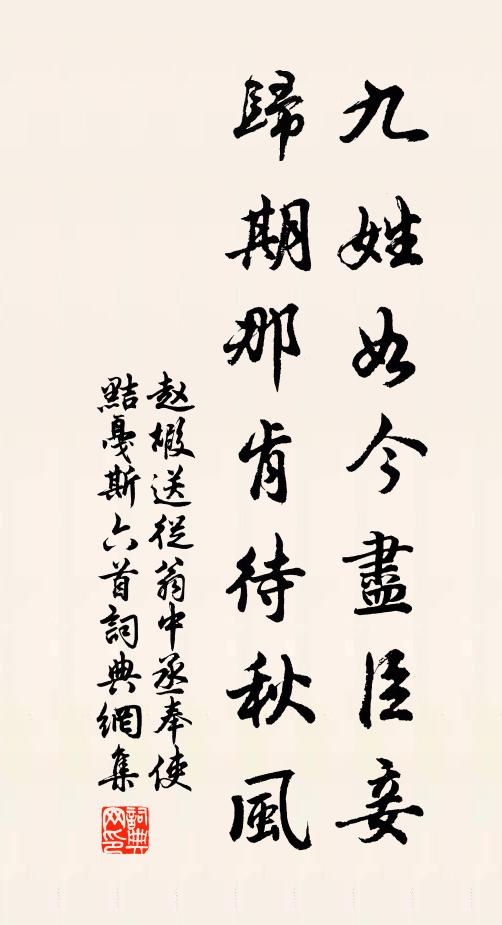 九姓如今盡臣妾
歸期那肯待秋風
赵嘏送從翁中丞奉使
黠戛斯六首詞典網集
詞典網印